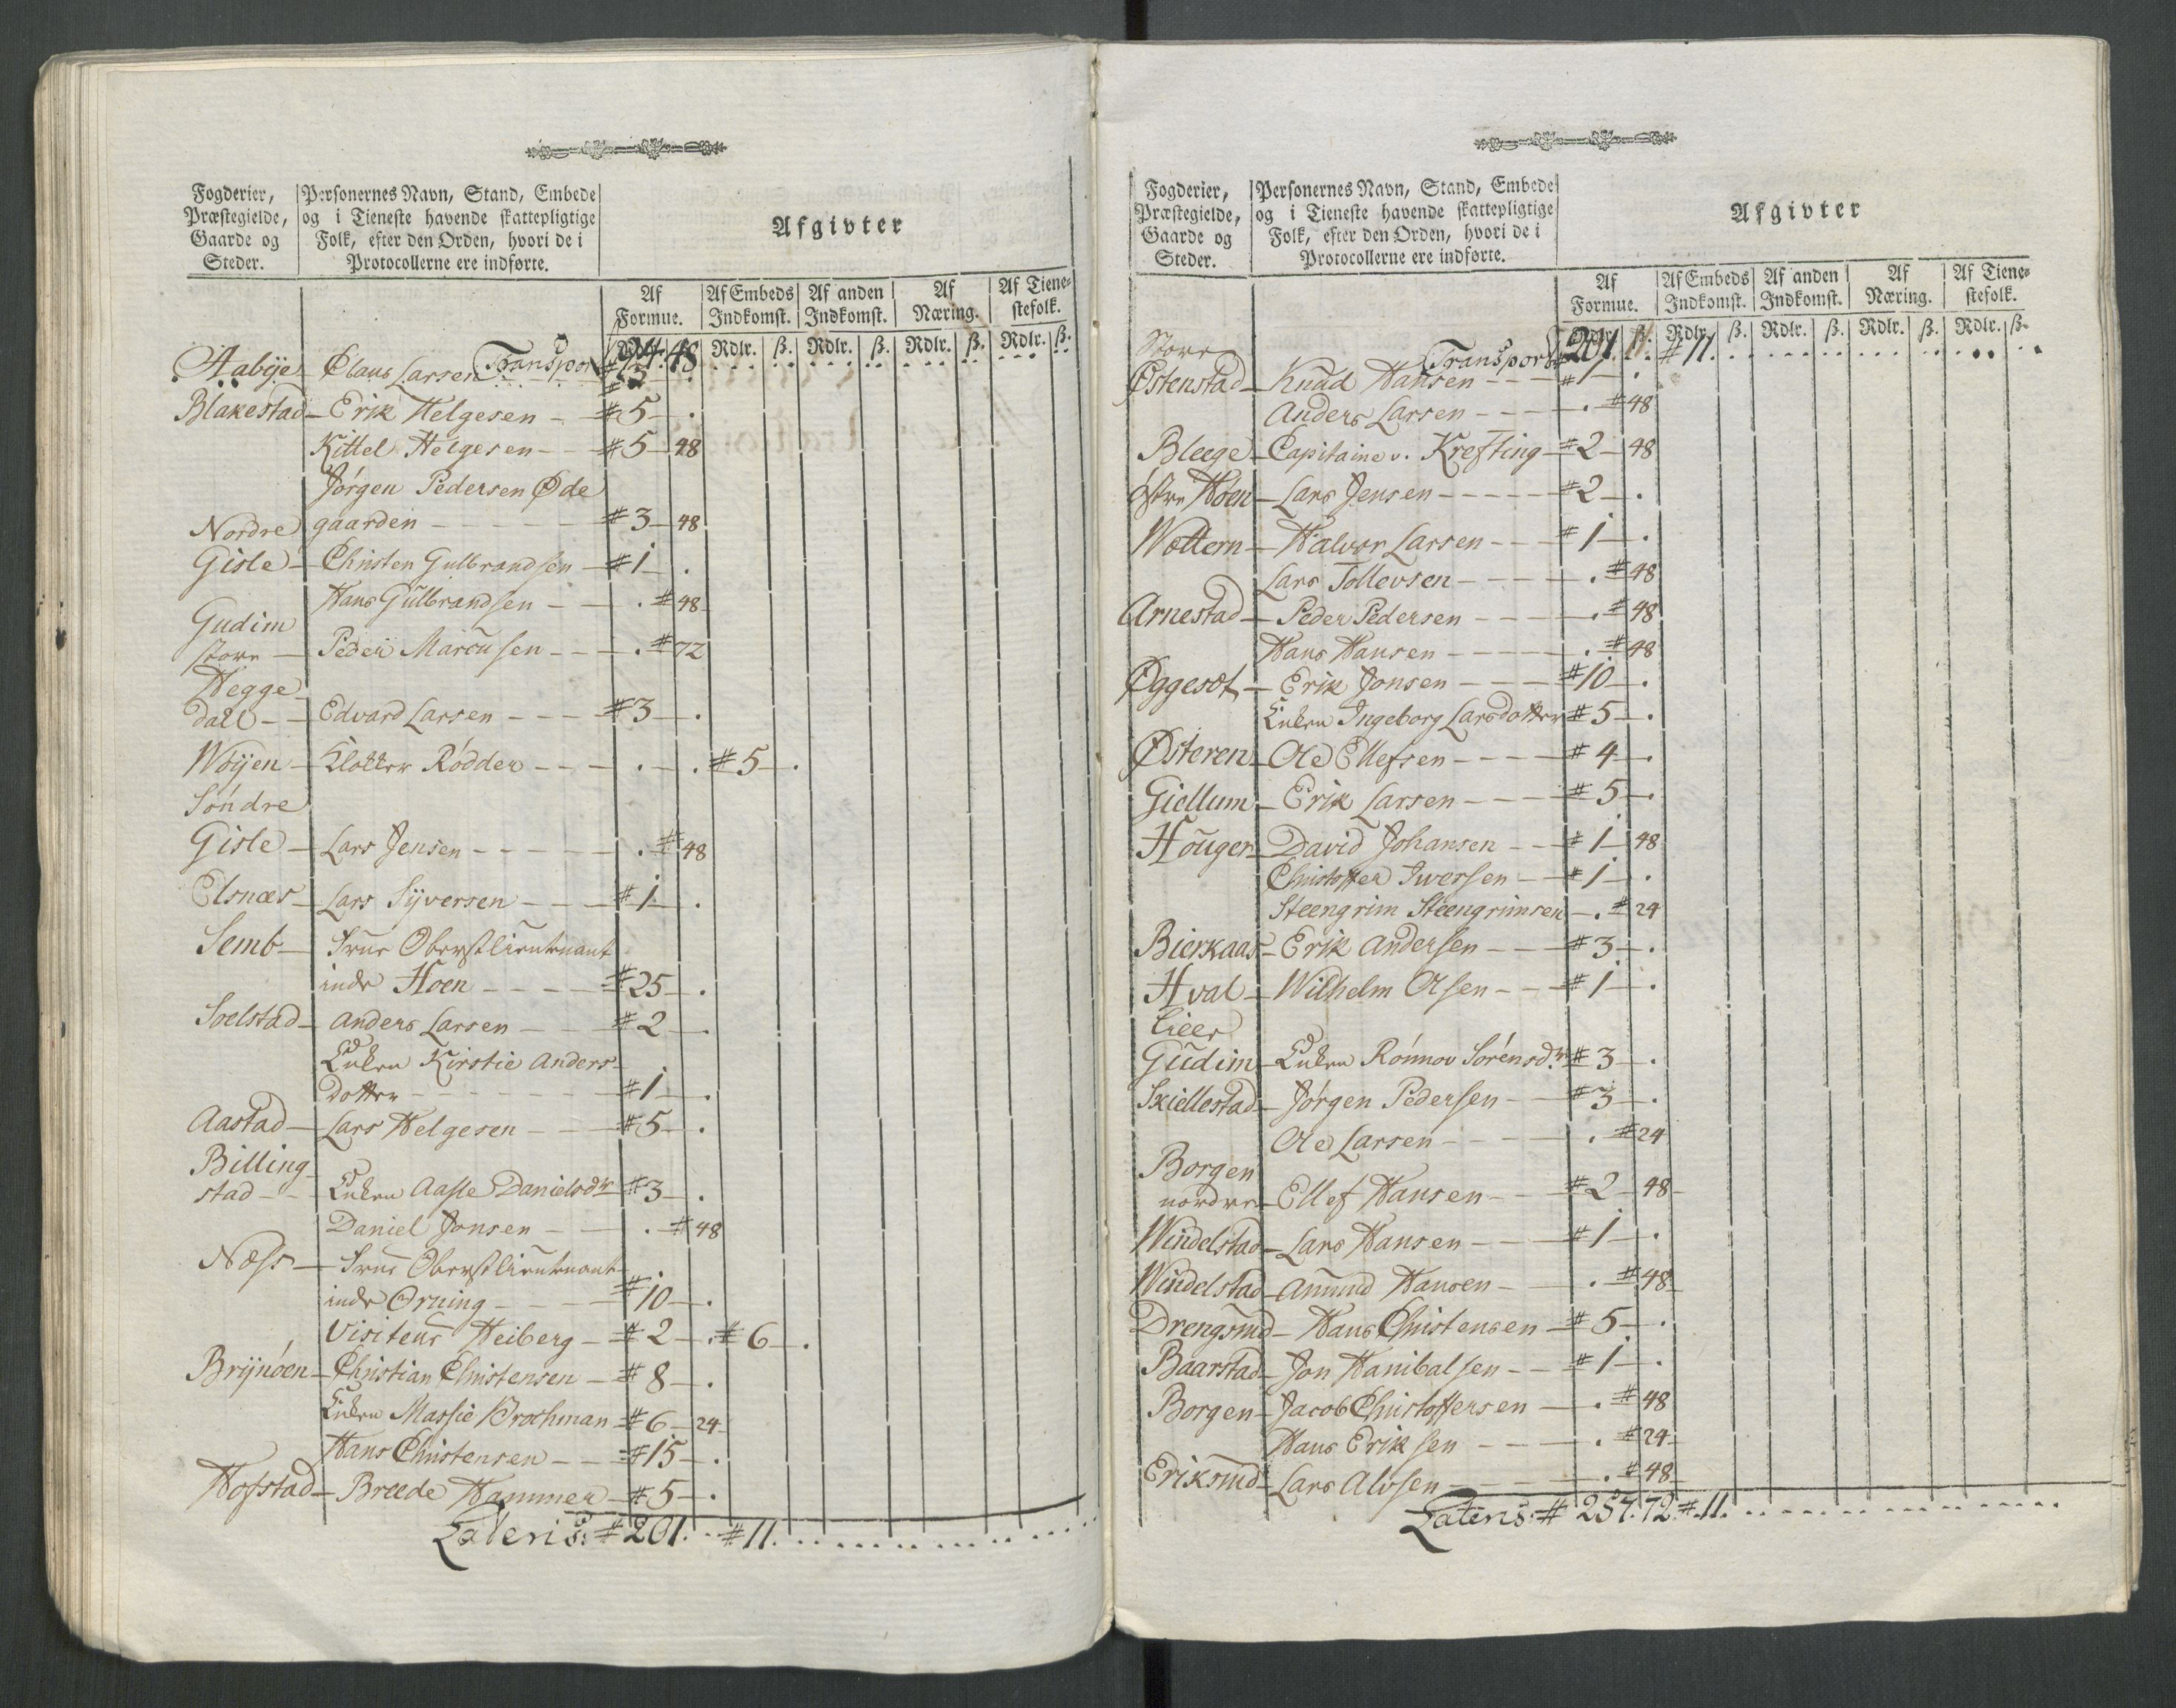 Fogderier, Præstegielde, Gaarde og Steder.
Personernes Navn, Stand, Embede og i Tieneste havende skattepligtige Folk, efter den Orden, hvori de i Protocollerne ere indførte.
Afgivter
Af Formue. Af Embeds Indkomst. Af anden Indkomst. Af Næring. Af Tienestefolk.
Rdlr. ß. Rdlr. ß. Rdlr. ß. Rdlr. ß. Rdlr. ß.
Transport 48
Aabÿe Claus Larsen
Blakestad Erik Helgesen # 5
Kittel Helgesen # 5 48
Jörgen Pedersen Øde
Nordre gaarden # 3 48
Gisle Christen Gulbrandsen # 1
Hans Gulbrandsen # 48
Gudim
store Peder Marcusen # 72
Hegge
dall Edvard Larsen # 3
Wöÿen Klokker Rödder # 5
Söndre
Gisle Lars Jensen # 48
Elsnæs Lars Sÿversen # 1
Semb Frue Oberstlieutenant
inde Hoen # 25
Soelstad Anders Larsen # 2
Enken Kirstie Anders
dotter # 1
Aastad Lars Helgesen # 5
Billing
stad Enken Aasle Danielsdr # 3
Daniel Jonsen # 48
Næss Frue Oberstlieutenant
inde Orning # 10
Visiteur Heiberg # 2 # 6
Brÿnöen Christian Christensen # 8
Enken Massie Brochman # 6 24
Hans Christensen # 15
Hofstad Breede Hammer # 5
Lateris: # 201. # 11.
Fogderier, Præstegielde, Gaarde og Steder.
Personernes Navn, Stand, Embede og i Tieneste havende skattepligtige Folk, efter den Orden, hvori de i Protocollerne ere indførte.
Afgivter
Af Formue. Af Embeds Indkomst. Af anden Indkomst. Af Næring. Af Tienestefolk.
ß. Rdlr. ß. Rdlr. ß. Rdlr. ß. Rdlr. ß.
Store Transport 201. # 11.
Østenstad Knud Hansen # 1
Anders Larsen # 48
Bleege Capitaine v. Krefting # 2 48
östre Höen Lars Jensen # 2
Wottern Halvor Larsen # 1
Lars Tollevsen # 48
Arnestad Peder Pedersen # 48
Hans Hansen # 48
Øggesæt Erik Jonsen # 10
Enken Ingeborg Larsdotter # 5
Østeren Ole Ellefsen # 4
Giellum Erik Larsen # 5
Houger David Johansen # 1 48
Christoffer Iversen # 1
Steengrim Steengrimsen # 24
Bierkaas Erik Andersen # 3
Hval Wilhelm Olsen # 1
Lieer
Gudim Enken Rönnov Sörensdr # 3
Skiellestad Jörgen Pedersen # 3
Ole Larsen # 24
Borgen
nordre Ellef Hansen # 2 48
Windelstad Lars Hansen # 1
Windelstad Amund Hansen # 48
Drengsrud Hans Christensen # 5
Baarstad Jon Hanibalsen # 1
Borgen Jacob Christoffersen # 48
Hans Eriksen # 24
Eriksrud Lars Alvsen # 48
Lateris: # 257. 72 # 11.